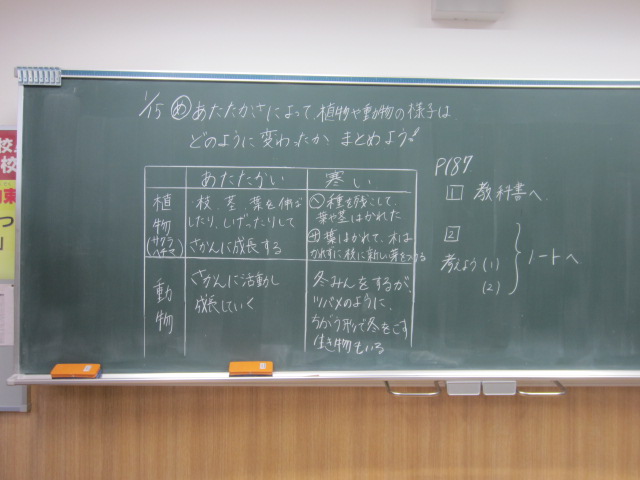 1/15 め あたたかさによって、植物や動物の様子は、
どのように変わったか まとめよう!
あたたかい
寒い
植物
(サクラ
ヘチマ)
・枝、茎、葉を伸ば
したり、しげったりして
さかんに成長する
ヘ 種を残こして、
葉や茎はかれた
サ 葉はかれて、木は
かれずに枝に新しい芽をつける
動物
さかんに活動し
成長していく
冬みんをするが、
ツバメのように、
ちがう形で冬をこす
生き物もいる
P187
1 教科書へ
2
考えよう(1)
(2)
ノートへ
校
校
東
つ
」